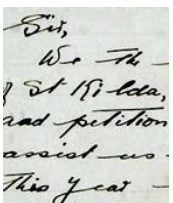 Sir,
We the
of St Kilda,
and petition
assist us
this year